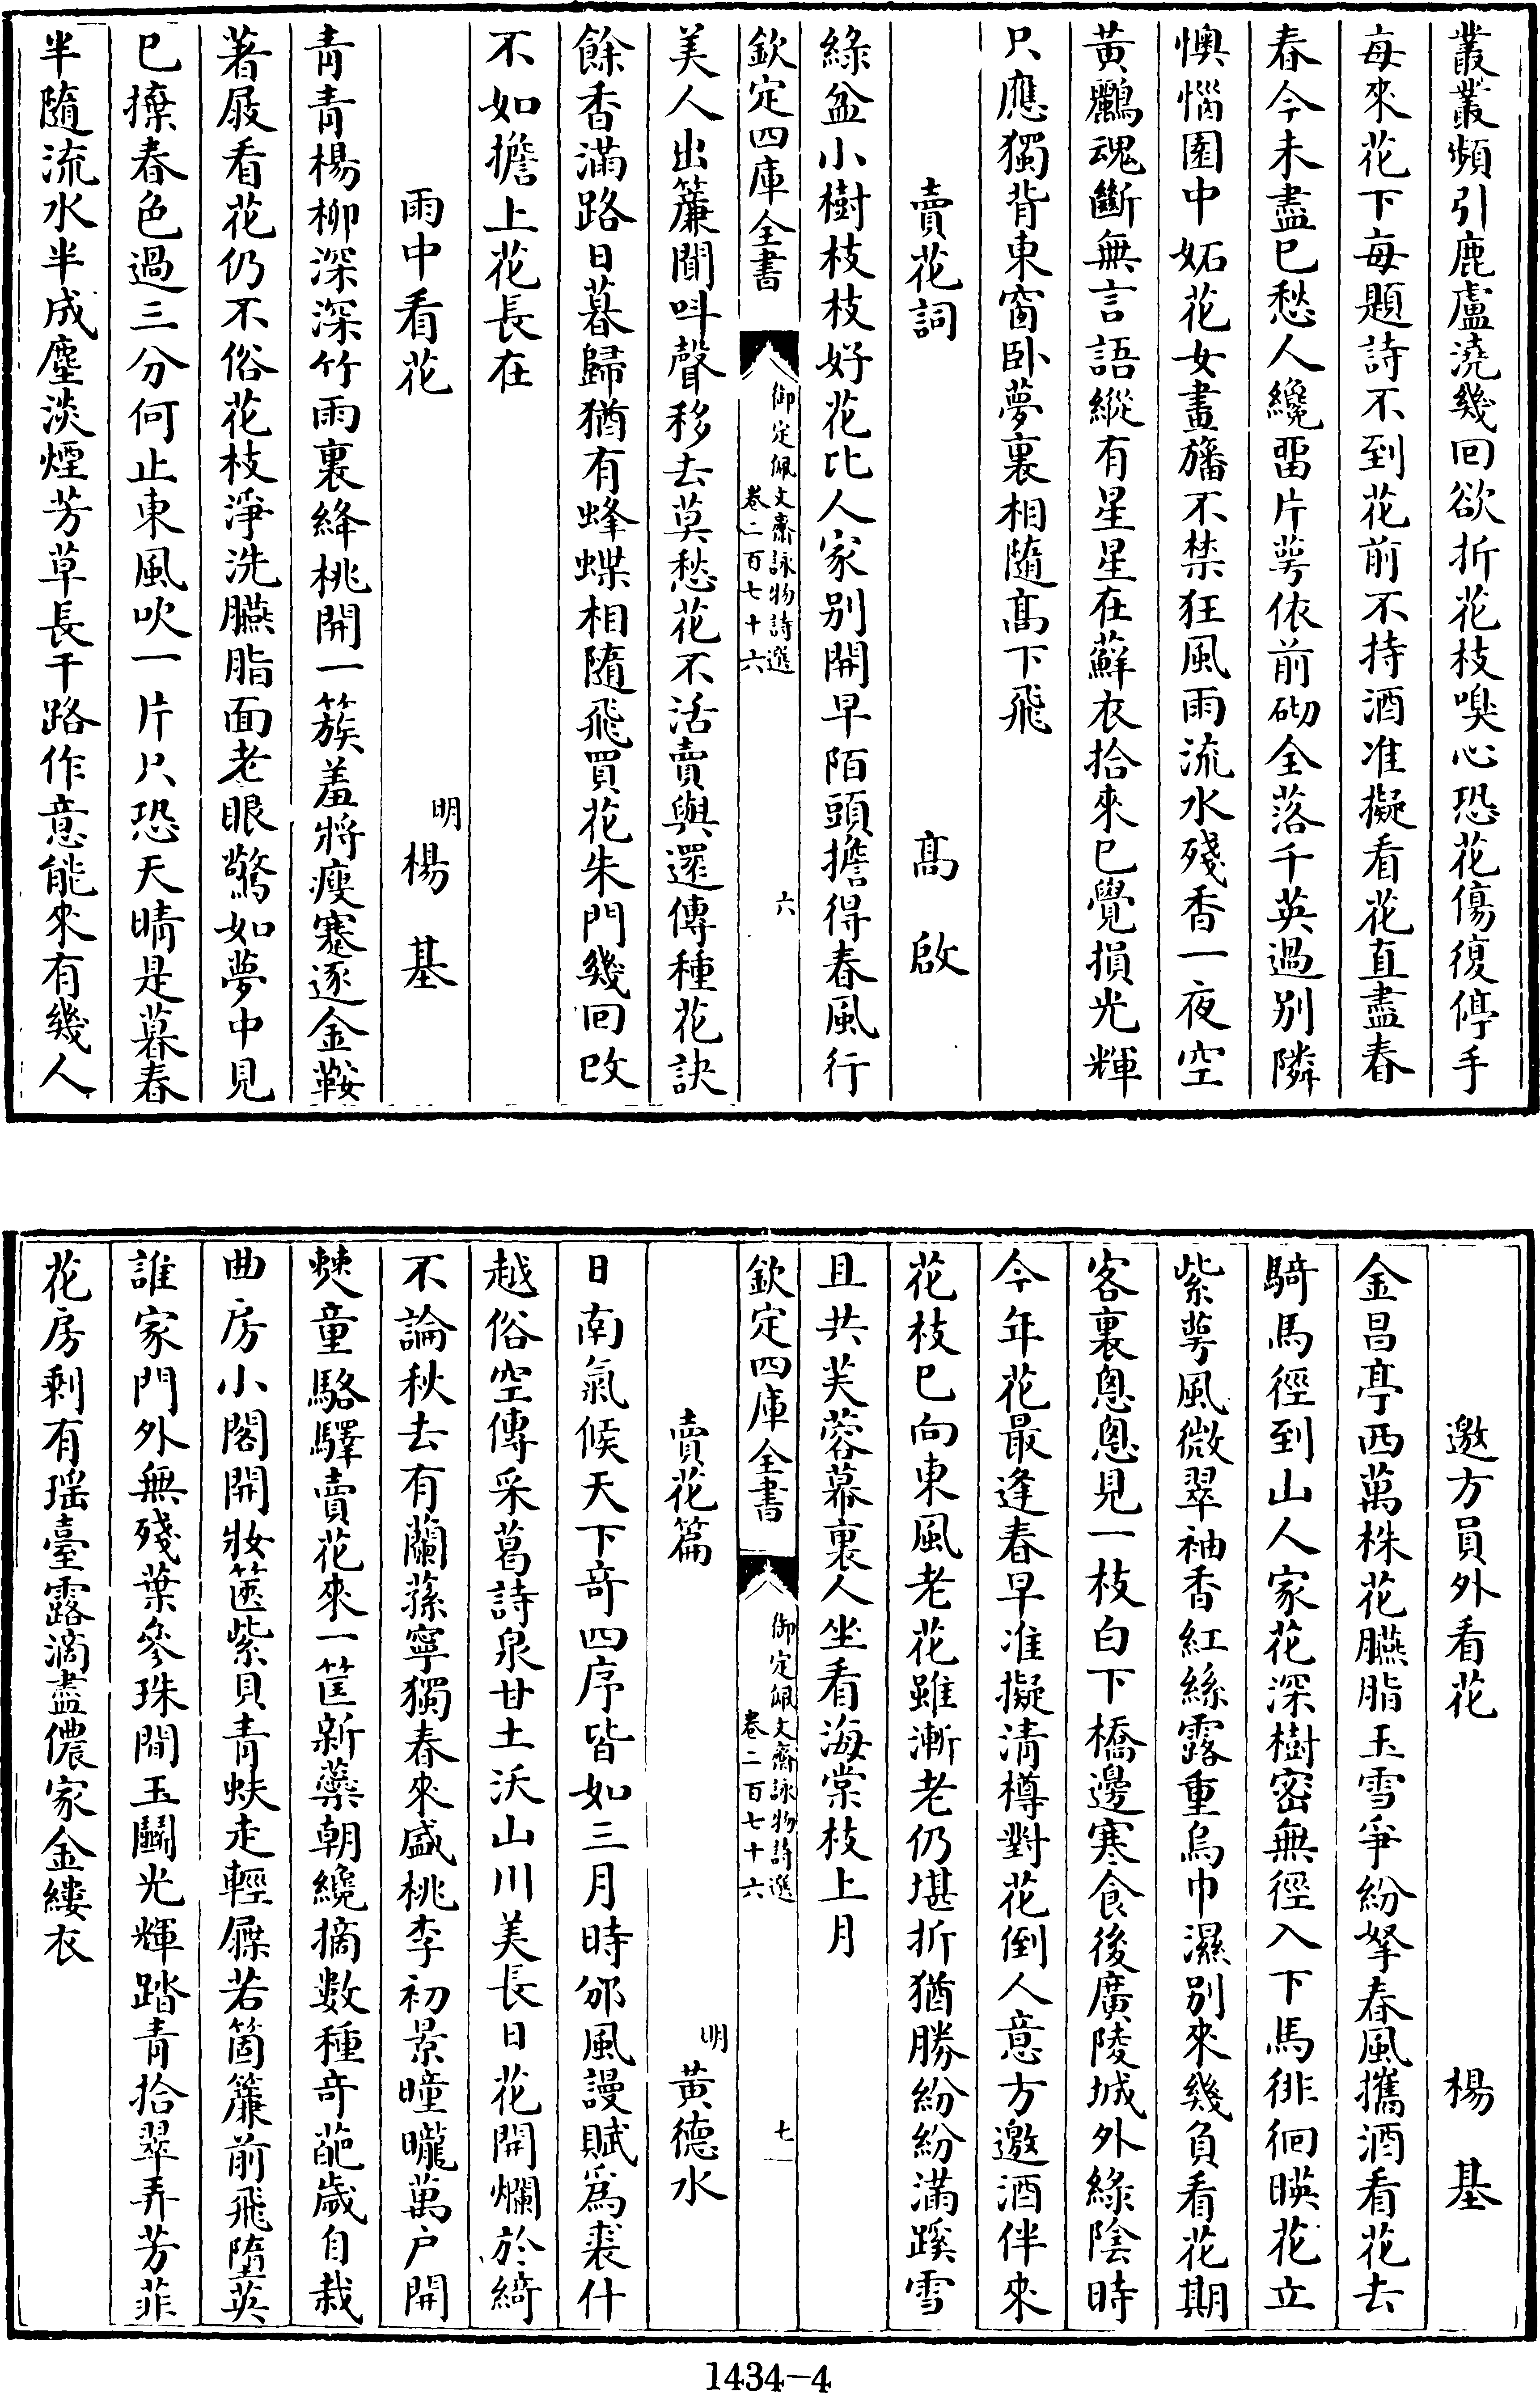 叢叢頻引鹿盧澆幾回欲折花枝嗅心恐花傷復停手
每來花下每題詩不到花前不持酒准擬看花直盡春
春今未盡已愁人纔畱片萼依前砌全落千英過别隣
懊惱園中妬花女畫旛不禁狂風雨流水殘香一夜空
黄鸝魂斷無言語縱有星星在蘚衣拾來已覺損光輝
只應獨背東窗卧夢裏相隨髙下飛
賣花詞 髙啟
綠盆小樹枝枝好花比人家别開早陌頭擔得春風行
欽定四庫全書 御定佩文齋詠物詩選 卷二百七十六 六
美人出簾聞呌聲移去莫愁花不活賣與還傳種花訣
餘香滿路日暮歸猶有蜂蝶相隨飛買花朱門幾回改
不如擔上花長在
雨中看花 明楊基
青青楊柳深深竹雨裏絳桃開一簇羞將瘦蹇逐金鞍
著屐看花仍不俗花枝淨洗臙脂面老眼驚如夢中見
已擽春色過三分何止東風吹一片只恐天晴是暮春
半隨流水半成塵淡煙芳草長干路作意能來有幾人
邀方員外看花 楊基
金昌亭西萬株花臙脂玉雪爭紛拏春風攜酒看花去
騎馬徑到山人家花深樹密無徑入下馬徘徊暎花立
紫萼風微翠袖香紅絲露重烏巾濕别來幾負看花期
客裏恖恖見一枝白下橋邊寒食後廣陵城外綠陰時
今年花最逢春早准擬清樽對花倒人意方邀酒伴來
花枝已向東風老花雖漸老仍堪折猶勝紛紛滿蹊雪
且共芙蓉幕裏人坐看海棠枝上月
欽定四庫全書 御定佩文齋詠物詩選 卷二百七十六 七
賣花篇 明黄德水
日南氣候天下竒四序皆如三月時邠風謾賦爲裘什
越俗空傳采葛詩泉甘土沃山川美長日花開爛於綺
不論秋去有蘭蓀寧獨春來盛桃李初景曈曨萬户開
僰童駱驛賣花來一筐新藥朝纔摘數種竒葩歲自栽
曲房小閣開妝篋紫貝青蚨走輕屧若箇簾前飛墮英
誰家門外無殘葉參珠間玉鬭光輝踏青拾翠弄芳菲
花房剩有瑶臺露滴盡儂家金縷衣
1434-4